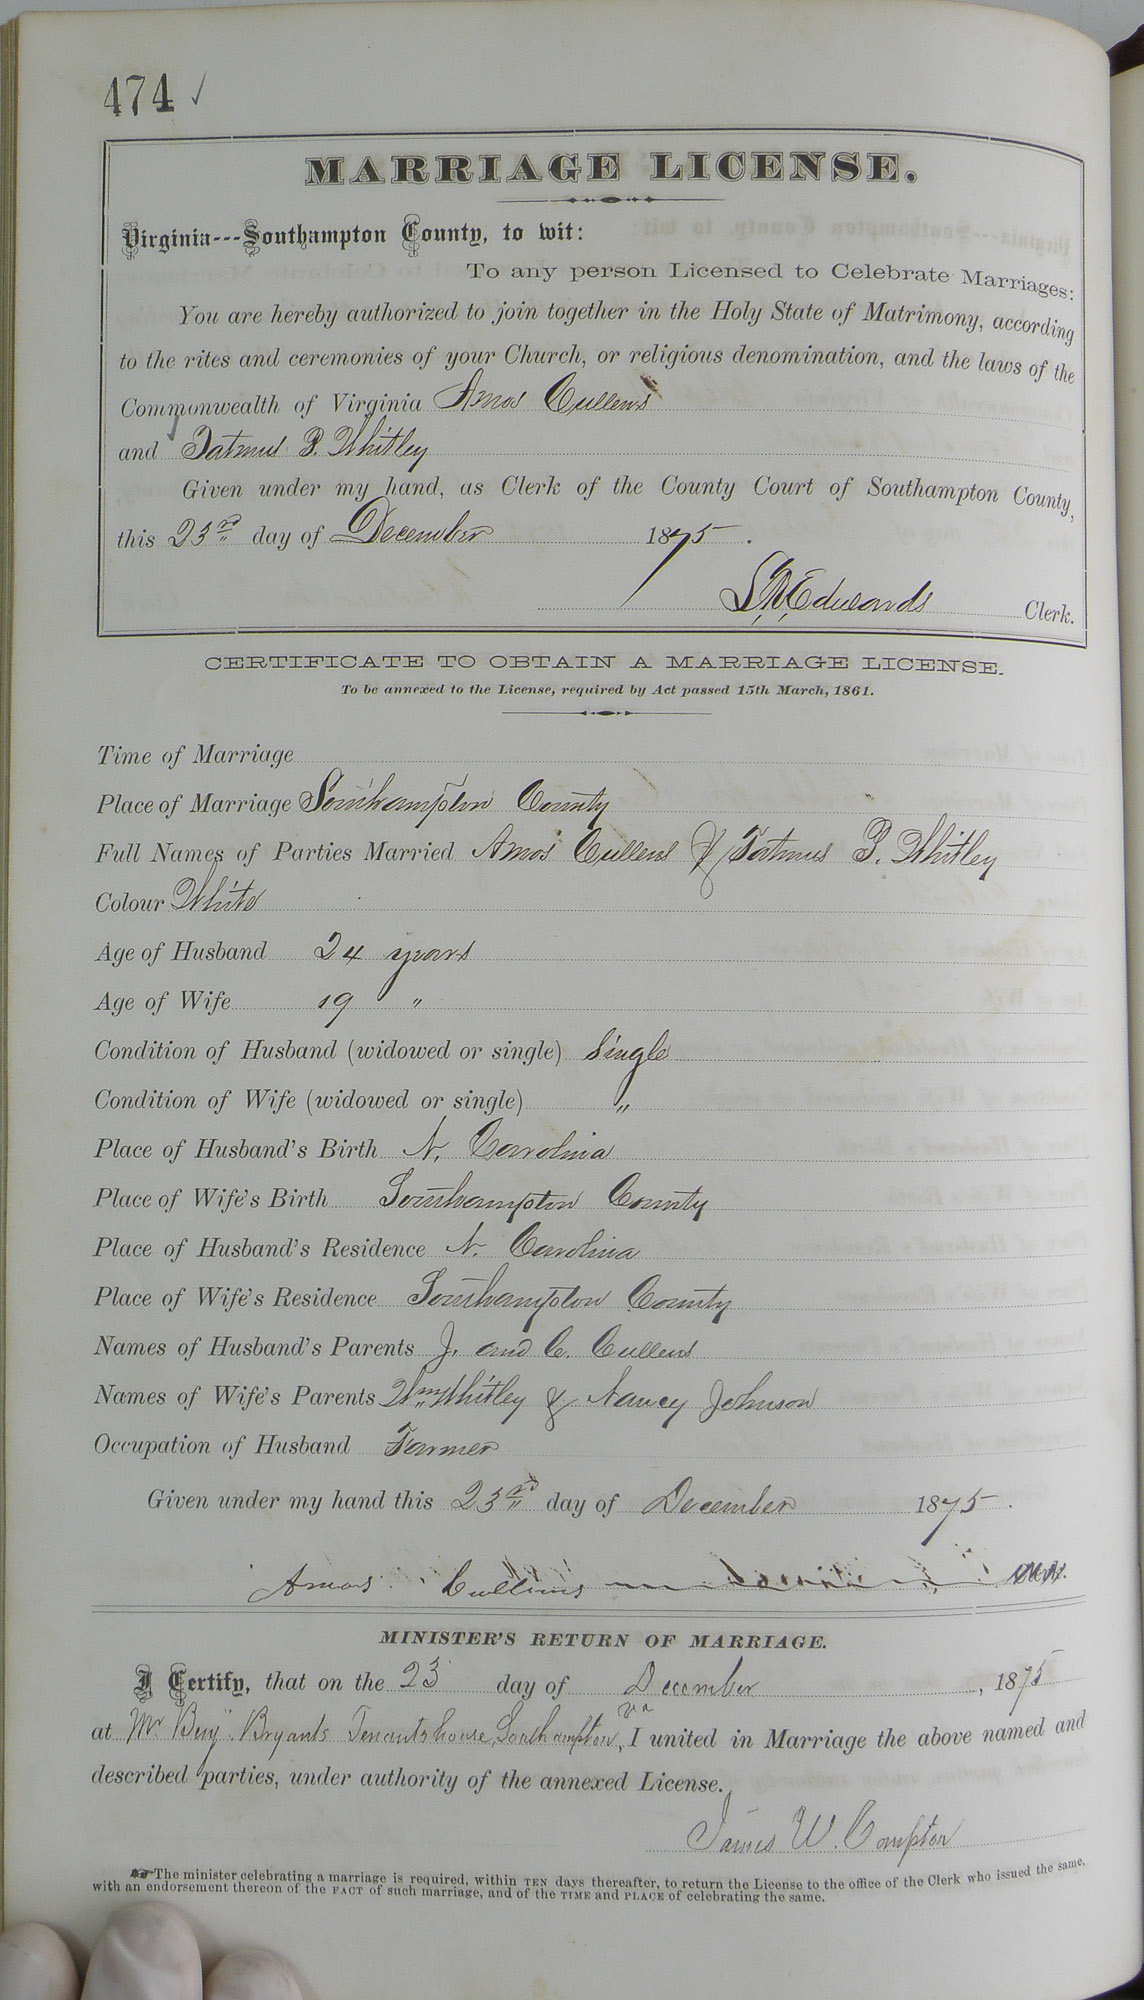 474 ✓
MARRIAGE LICENSE.
Virginia---Southampton County, to wit:
To any person Licensed to Celebrate Marriages:
You are hereby authorized to join together in the Holy State of Matrimony, according
to the rites and ceremonies of your Church, or religious denomination, and the laws of the
Commonwealth of Virginia Amos Cullens
and Tatmus P. Whitley
Given under my hand, as Clerk of the County Court of Southampton County,
this 23rd day of December 1875.
Edwards Clerk.
CERTIFICATE TO OBTAIN A MARRIAGE LICENSE.
To be annexed to the License, required by Act passed 15th March, 1861.
Time of Marriage
Place of Marriage Southampton County
Full Names of Parties Married Amos Cullens & Tatmus P. Whitley
Colour White
Age of Husband 24 years
Age of Wife 19 "
Condition of Husband (widowed or single) Single
Condition of Wife (widowed or single) "
Place of Husband's Birth N. Carolina
Place of Wife's Birth Southampton County
Place of Husband's Residence N. Carolina
Place of Wife's Residence Southampton County
Names of Husband's Parents J. and C. Cullens
Names of Wife's Parents Wm Whitley & Nancy Johnson
Occupation of Husband Farmer
Given under my hand this 23rd day of December 1875.
Amos Cullens
MINISTER'S RETURN OF MARRIAGE.
I Certify, that on the 23 day of December, 1875
at Mr Benj. Bryants Tenants house, Southampton, Va I united in Marriage the above named and
described parties, under authority of the annexed License.
James W. Compton
☞The minister celebrating a marriage is required, within TEN days thereafter, to return the License to the office of the Clerk who issued the same,
with an endorsement thereon of the FACT of such marriage, and of the TIME and PLACE of celebrating the same.